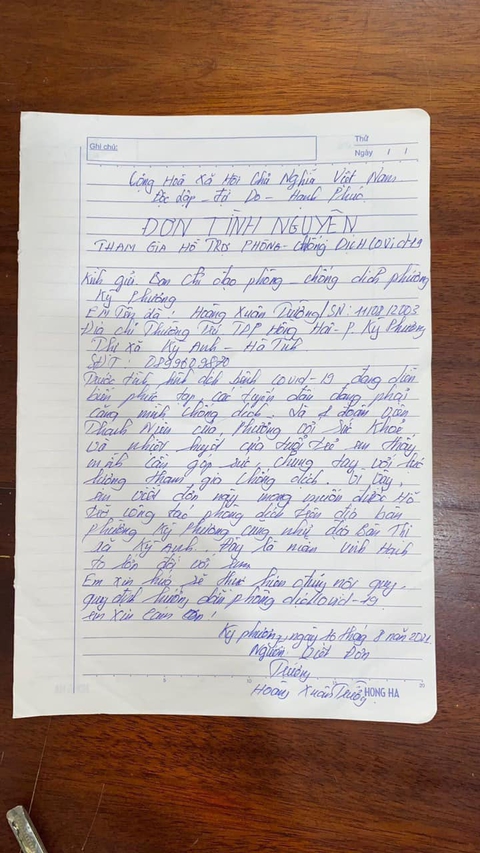 Ghi chú:
Thứ
Ngày / /
Cộng Hoà Xã Hội Chủ Nghĩa Việt Nam
Độc lập - Tự Do - Hạnh Phúc
ĐƠN TÌNH NGUYỆN
THAM GIA HỖ TRỢ PHÒNG - Chống DỊCH COVID-19
Kính gửi. Ban chỉ đạo phòng - chống dịch phường
Kỳ Phương
EM Tên là: Hoàng Xuân Trường / SN: 11/08/2003
Địa chỉ Thường Trú TDP Hồng Hải - P. Kỳ Phương
Thị xã Kỳ Anh - Hà Tĩnh
SĐT:
Trước tình hình dịch bệnh covid-19 đang diễn
biến phức tạp các tuyến đầu đang phải
căng mình chống dịch. Là 1 đoàn viên
Thanh Niên của Phường với sức khoẻ
và nhiệt huyết của tuổi trẻ em thấy
mình cần góp sức, chung tay với lực
lượng tham gia chống dịch. Vì vậy,
em viết đơn này mong muốn được Hỗ
trợ công tác phòng dịch trên địa bàn
phường Kỳ Phương cũng như địa Bàn Thị
xã Kỳ Anh. Đây là niềm vinh hạnh
to lớn đối với em
Em xin hứa sẽ thực hiện đúng nội quy,
quy định hướng dẫn phòng dịch covid-19
em xin cảm ơn!
Kỳ phương, ngày 10 tháng 8 năm 2021
Người Viết Đơn
Trường
Hoàng Xuân Trường
HONG HA